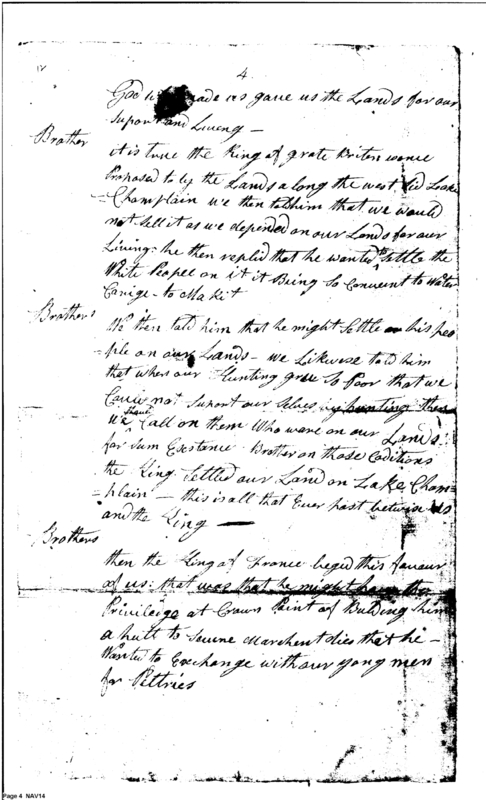 4
God who made us gave us the Lands for our
Suport and Liveng —
Brother
it is true the King of grate Briten wonce
Proposed to by the Lands along the west Sid Lake
=Champlain we then told him that we would
not Sell it as we depended on our Lands for our
Living: he then replid that he wanted to Settle the
White Peopel on it it Being So Convent to Water
Carige - to Markit
Brothers
We then told him that he might Settle his peo
=ple on our Lands - we Likewise told him
that when our Hunting grew So Poor that we
Could not Suport our Selves by hunting then
we Should Call on them Who ware on our Lands
for Sum Exestance - Brother on those Coditions
the King Settled our Land on Lake Cham=
=plain — this is all that Ever past betwixt us
and the King —
Brothers
then the King of France beged this favour
of us: that was that he might have the
Privilige at Crown Point of Bulding him
a hutt to Marchentdies that he —
Wanted to Exchange with our yong men
for Peltries
Page 4 NAV14